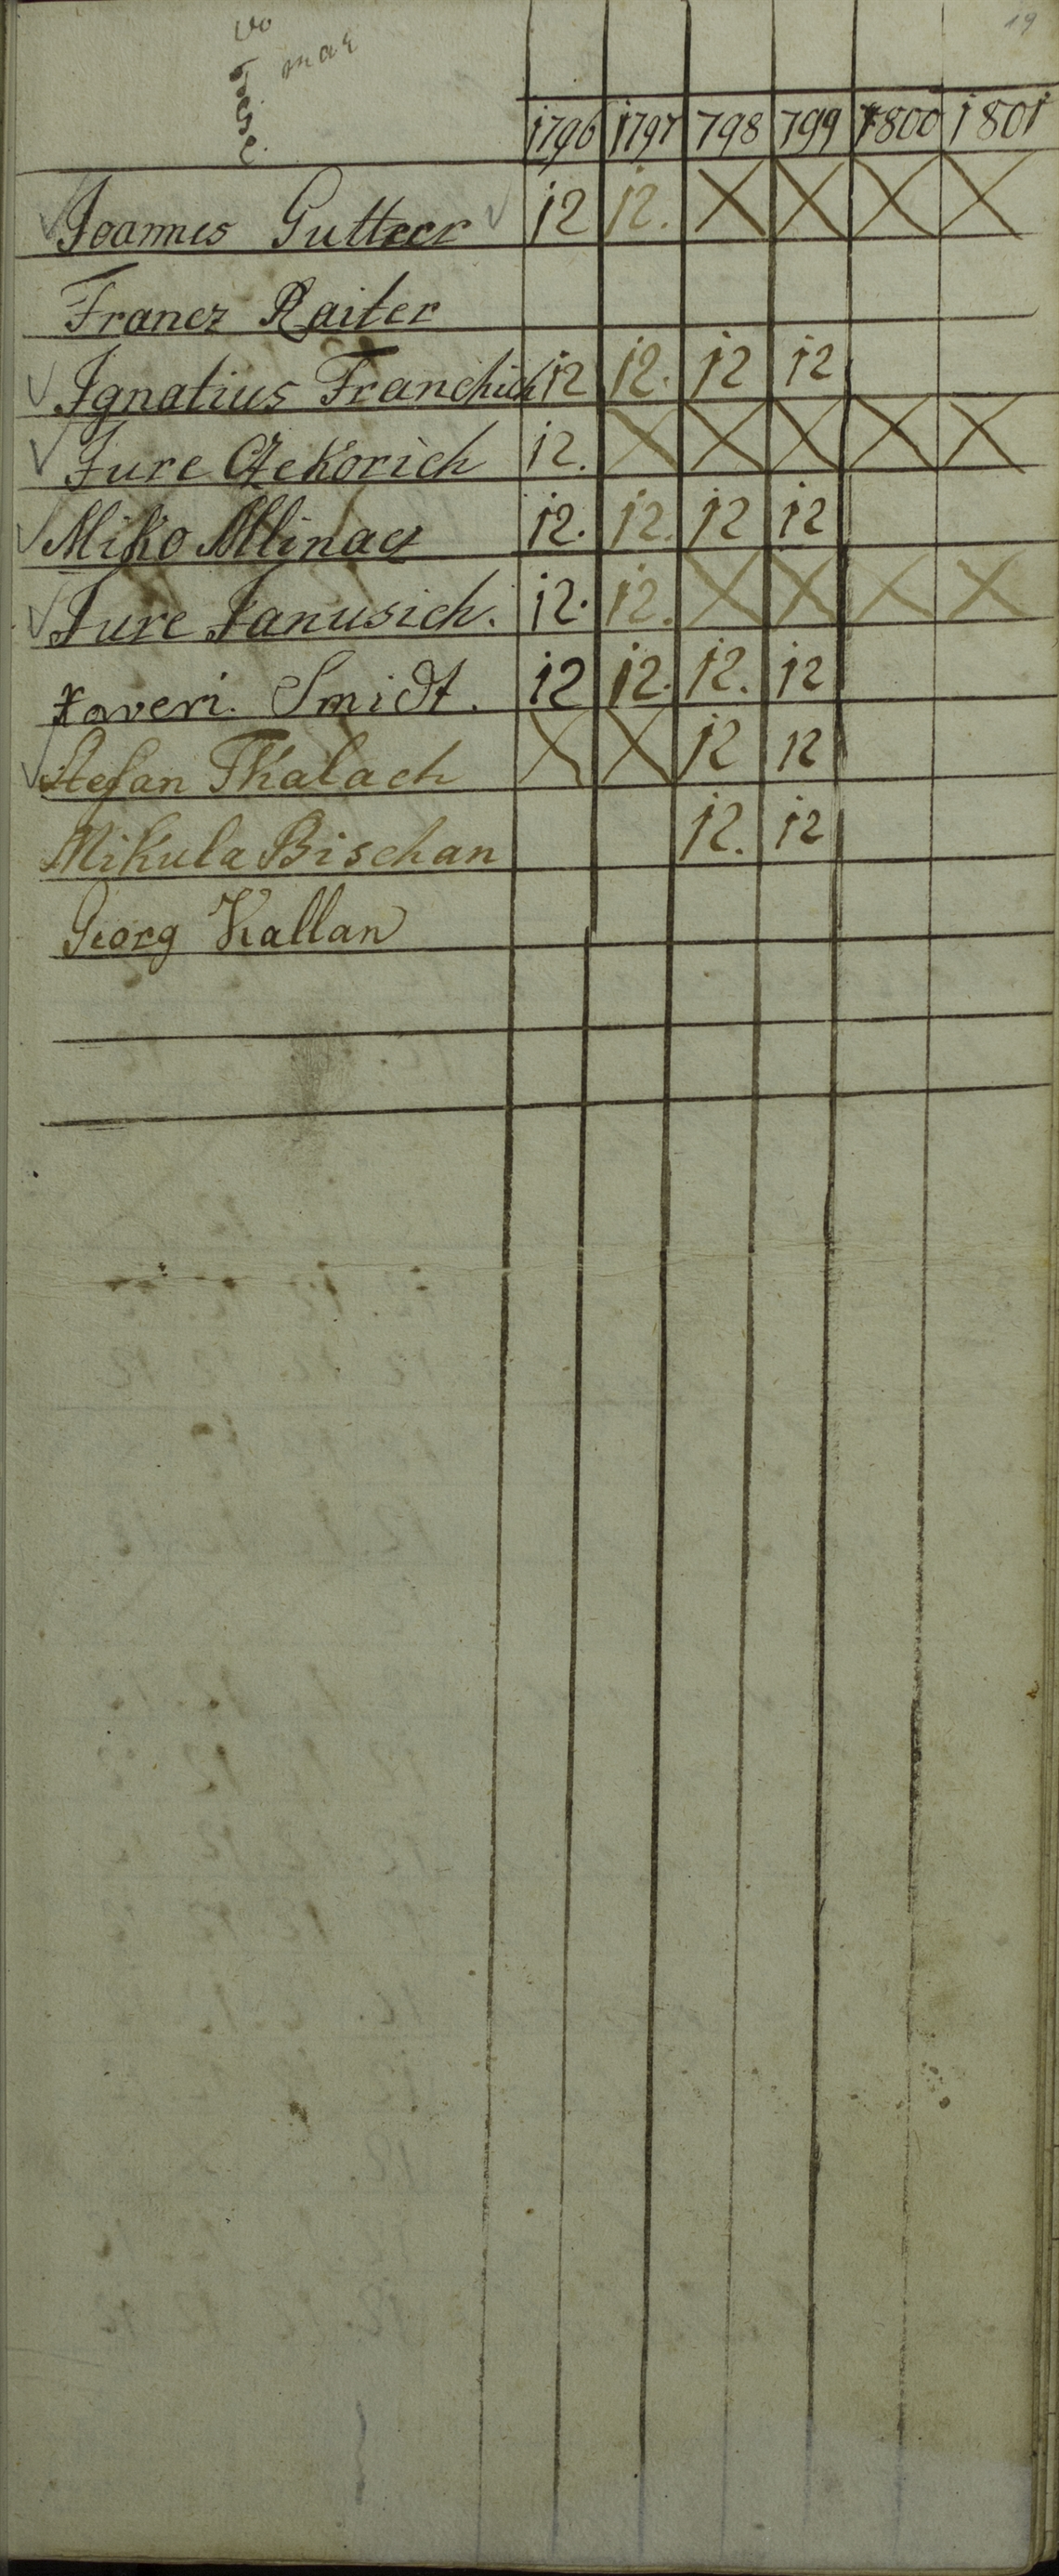 19
1796 1797 798 799 1800 1801
Joannes Gutteer 12 12. X X X X
Francz Raiter
Ignatius Franchich 12 12. 12 12
Jure Czekorich 12. X X X X X
Miko Mlinacz 12. 12. 12 12
Jure Janusich. 12. 12. X X X X
Xaveri. Smidt. 12 12. 12. 12
Stefan Tkalach X X 12 12
Mikula Bischan 12. 12
Georg Kallan